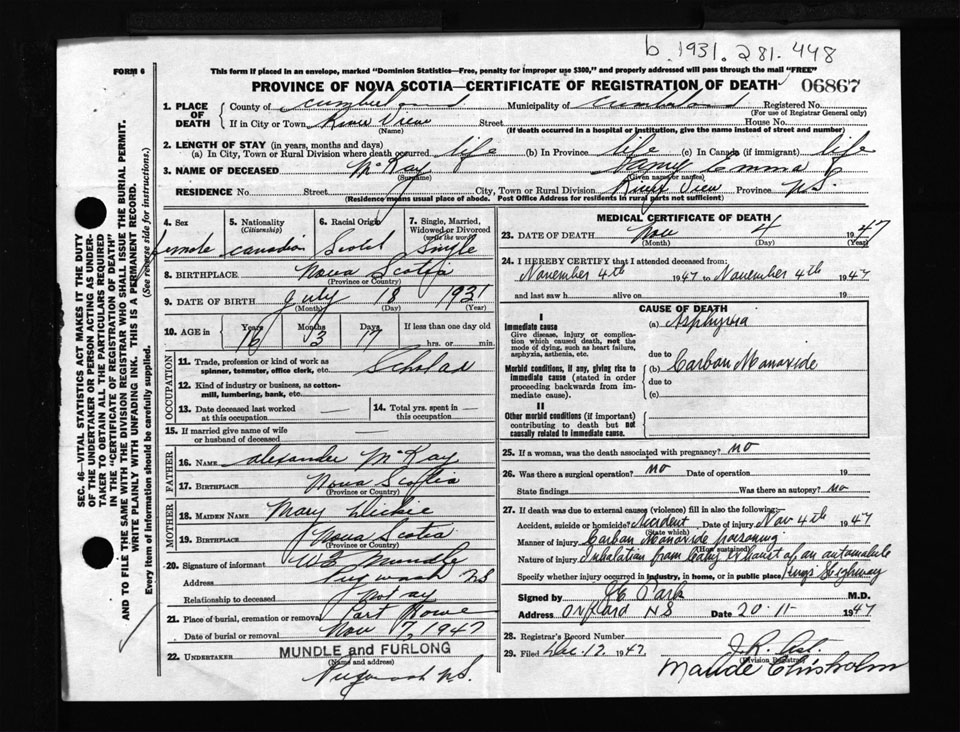 b. 1931. 281. 448
FORM 6
This form if placed in an envelope, marked "Dominion Statistics—Free, penalty for improper use $300," and properly addressed will pass through the mail "FREE"
PROVINCE OF NOVA SCOTIA—CERTIFICATE OF REGISTRATION OF DEATH 06867
1. PLACE OF DEATH
County of Cumberland Municipality of Cumberland Registered No.
(For use of Registrar General only)
If in City or Town River View Street House No.
(Name) (If death occurred in a hospital or institution, give the name instead of street and number)
2. LENGTH OF STAY (in years, months and days)
(a) In City, Town or Rural Division where death occurred life (b) In Province life (c) In Canada (if immigrant) life
3. NAME OF DECEASED McKay Emma
(Surname) (Given name or names)
RESIDENCE No. Street City, Town or Rural Division River View Province N.S.
(Residence means usual place of abode. Post Office Address for residents in rural parts not sufficient)
4. Sex female
5. Nationality (Citizenship) Canadian
6. Racial Origin Scotch
7. Single, Married, Widowed or Divorced (write the word) Single
8. BIRTHPLACE Nova Scotia
(Province or Country)
9. DATE OF BIRTH July 18 1931
(Month) (Day) (Year)
10. AGE in Years 16 Months 3 Days 17 If less than one day old hrs. or min.
OCCUPATION
11. Trade, profession or kind of work as spinner, teamster, office clerk, etc. Scholar
12. Kind of industry or business, as cotton-mill, lumbering, bank, etc.
13. Date deceased last worked at this occupation —
14. Total yrs. spent in this occupation —
15. If married give name of wife or husband of deceased —
FATHER
16. NAME Alexander McKay
17. BIRTHPLACE Nova Scotia
(Province or Country)
MOTHER
18. MAIDEN NAME Mary Dickie
19. BIRTHPLACE Nova Scotia
(Province or Country)
20. Signature of informant W.E. Mundle
Address Pugwash NS
Relationship to deceased not any
21. Place of burial, cremation or removal Port Howe
Date of burial or removal Nov 7, 1947
22. UNDERTAKER MUNDLE and FURLONG
(Name and address)
Pugwash N.S.
MEDICAL CERTIFICATE OF DEATH
23. DATE OF DEATH Nov 4 1947
(Month) (Day) (Year)
24. I HEREBY CERTIFY that I attended deceased from:
November 4th 1947 to November 4th 1947
and last saw h alive on 19
CAUSE OF DEATH
I
Immediate cause
Give disease, injury or complication which caused death, not the mode of dying, such as heart failure, asphyxia, asthenia, etc.
(a) Asphyxia
due to
Morbid conditions, if any, giving rise to immediate cause (stated in order proceeding backwards from immediate cause).
(b) Carbon Monoxide
due to
(c)
II
Other morbid conditions (if important) contributing to death but not causally related to immediate cause.
25. If a woman, was the death associated with pregnancy? no
26. Was there a surgical operation? no Date of operation 19
State findings Was there an autopsy? no
27. If death was due to external causes (violence) fill in also the following:
Accident, suicide or homicide? Accident Date of injury Nov 4th 1947
(State which)
Manner of injury Carbon Monoxide poisoning
(How sustained)
Nature of injury Inhalation from leaky exhaust of an automobile
Specify whether injury occurred in industry, in home, or in public place Kings Highway
Signed by Park M.D.
Address Oxford NS Date 20-11- 1947
28. Registrar's Record Number
29. Filed Dec. 12. 1947.
(Division Registrar)
Maude Chisholm
SEC. 46—VITAL STATISTICS ACT MAKES IT THE DUTY
OF THE UNDERTAKER OR PERSON ACTING AS UNDER-
TAKER TO OBTAIN ALL THE PARTICULARS REQUIRED
IN THE "CERTIFICATE OF REGISTRATION OF DEATH"
AND TO FILE THE SAME WITH THE DIVISION REGISTRAR WHO SHALL ISSUE THE BURIAL PERMIT.
WRITE PLAINLY WITH UNFADING INK. THIS IS A PERMANENT RECORD.
Every item of information should be carefully supplied. (See reverse side for instructions.)